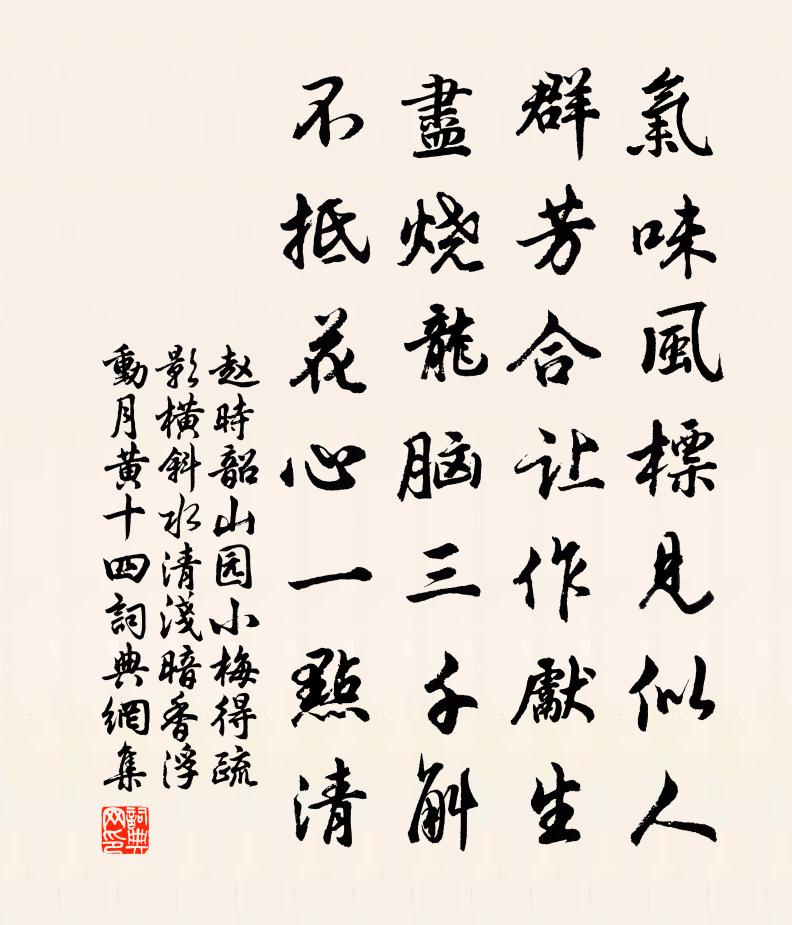 氣味風標見似人
群芳合让作獻生
盡烧龍脑三千斛
不抵花心一點清
赵時韶山园小梅得疏
影横斜水清淺暗香浮
動月黄十四詞典網集
詞典网印